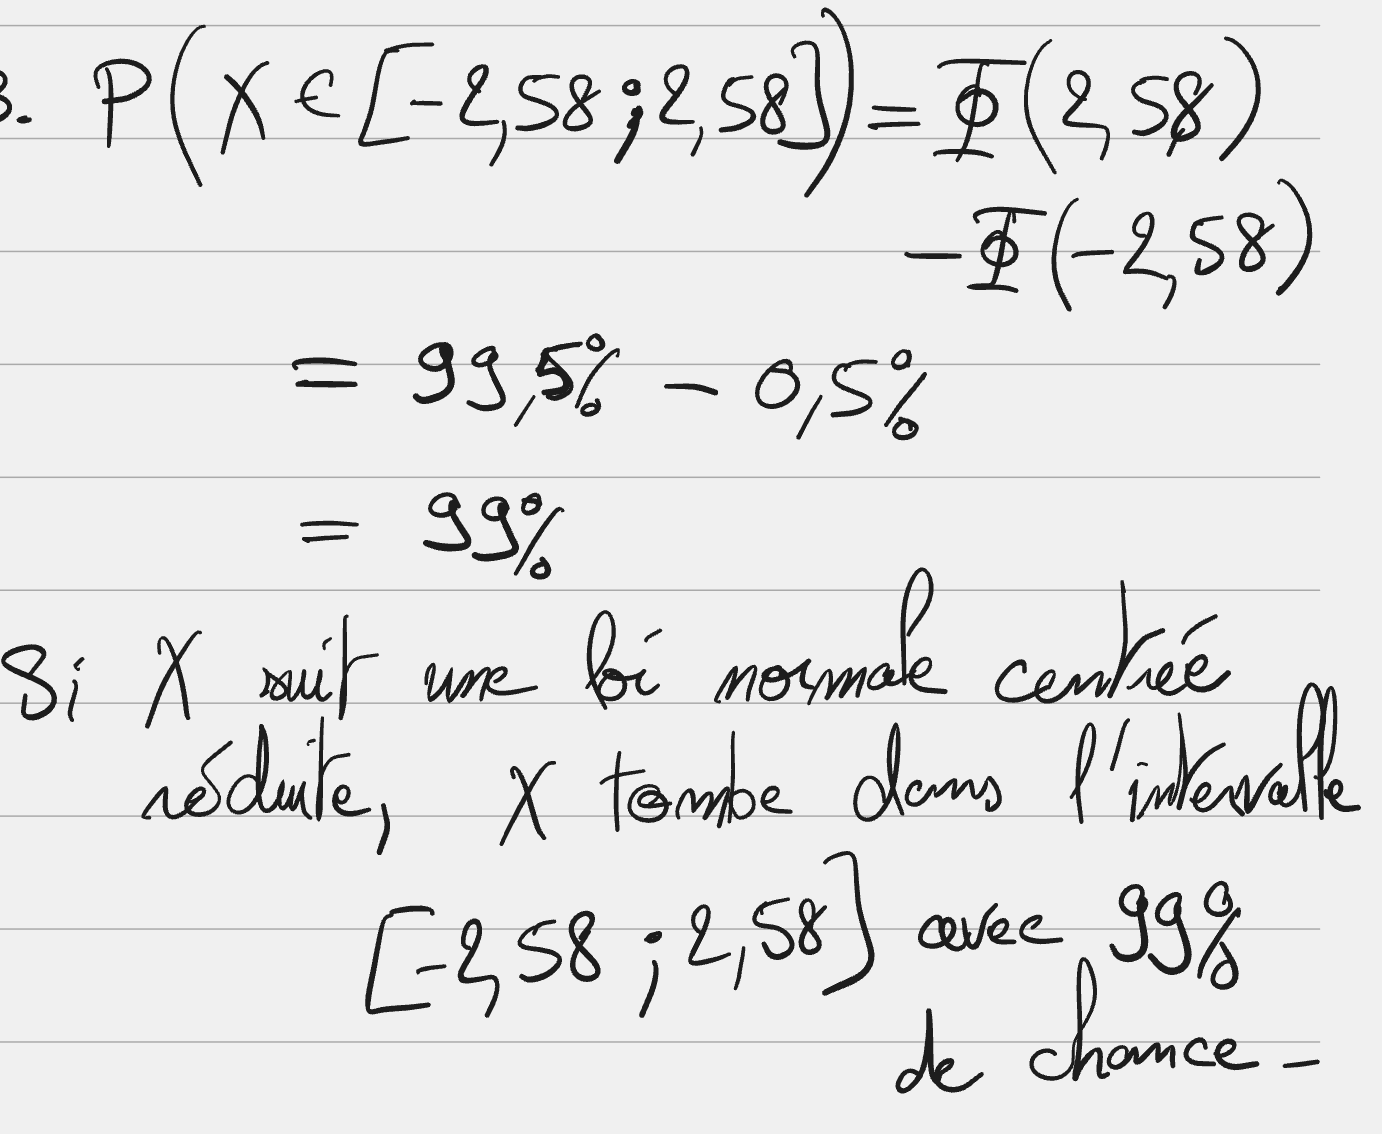 3. P(X ∈ [-2,58 ; 2,58]) = Φ(2,58)
- Φ(-2,58)
= 99,5% - 0,5%
= 99%
Si X suit une loi normale centrée
réduite, X tombe dans l'intervalle
[-2,58 ; 2,58] avec 99%
de chance -